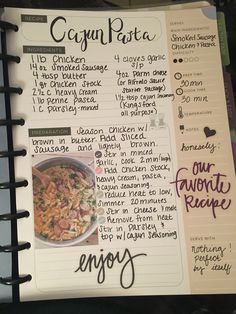 RECIPE
Cajun Pasta
SERVES
MAIN INGREDIENTS
Smoked Sausage
Chicken & Pasta
DIFFICULTY
PREP TIME
30 min
COOK TIME
30 min
TEMPERATURE
NOTES
honestly:
our
favorite
Recipe
SERVE WITH
nothing!
perfect
by itself
INGREDIENTS
1 lb Chicken
14 oz Smoked Sausage
4 tbsp butter
4c Chicken Stock
2 1/2 c heavy Cream
1 lb penne Pasta
1 c Parsley-minced
4 cloves garlic
S/P
4oz Parm cheese
(or Alfredo Sauce
Starter Package)
1/2 tbsp cajun seasoning
(Kingsford
all purpose)
PREPARATION
Season Chicken w/
brown in butter. Add sliced
Sausage and lightly brown.
Stir in minced
garlic, cook 2 min (high)
Add Chicken Stock,
heavy cream, pasta,
cajun seasoning.
Reduce heat to low,
Simmer 20 minutes
Stir in Cheese & melt
Remove from heat
Stir in Parsley &
top w/ Cajun Seasoning
enjoy